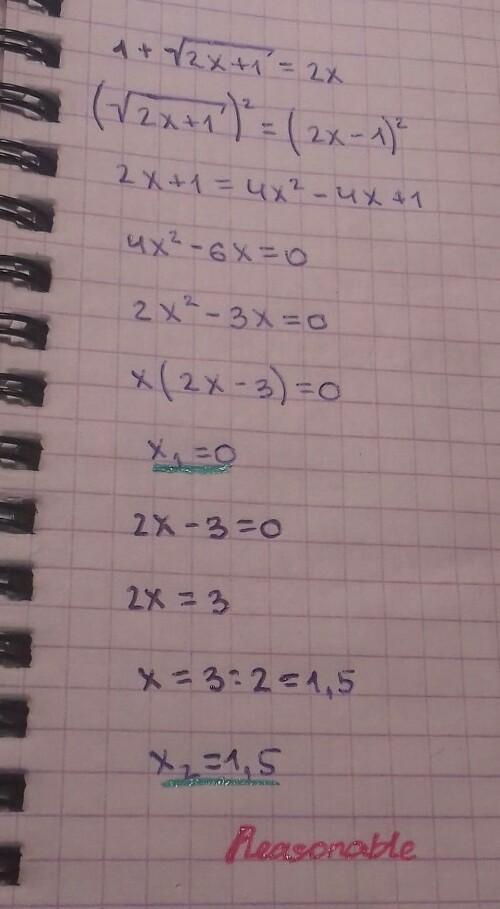 1 + √(2x+1) = 2x
(√(2x+1))² = (2x-1)²
2x+1 = 4x² - 4x+1
4x² - 6x = 0
2x² - 3x = 0
x(2x-3) = 0
x₁ = 0
2x - 3 = 0
2x = 3
x = 3:2 = 1,5
x₂ = 1,5
Reasonable